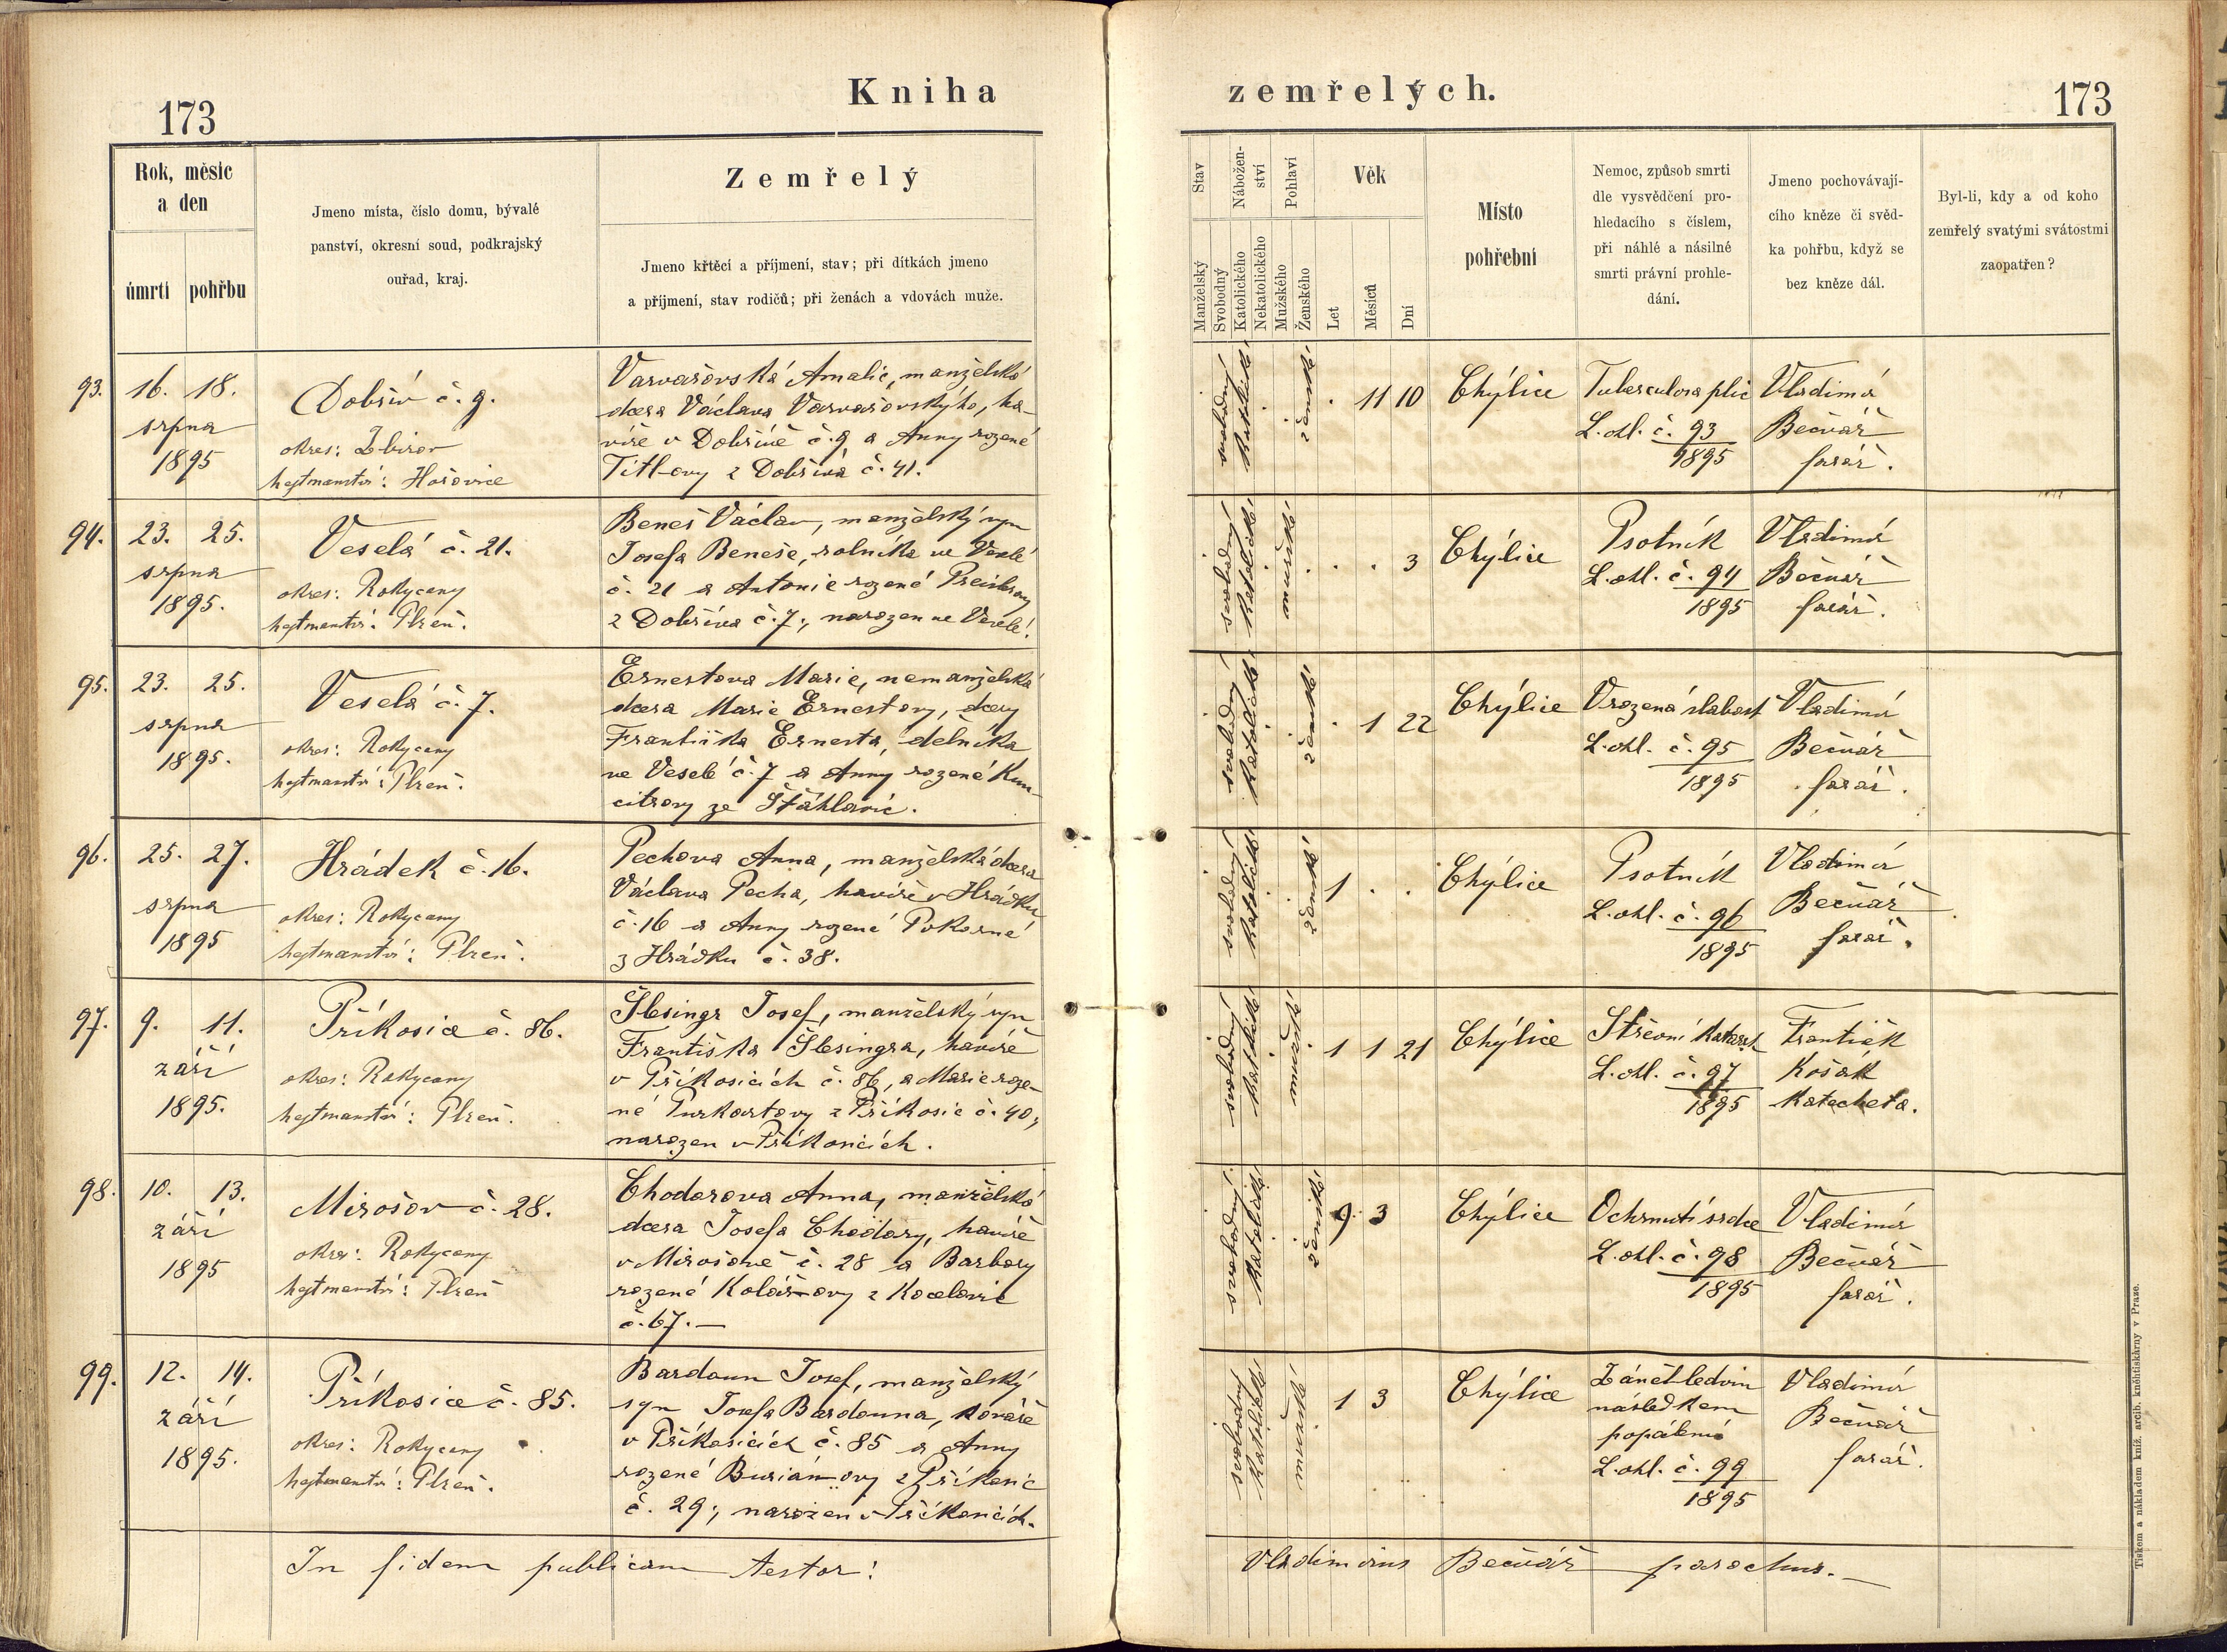 173
Kniha
zemřelých.
173
Rok, měsíc
a den
úmrtí
pohřbu
Jmeno místa, číslo domu, bývalé
panství, okresní soud, podkrajský
ouřad, kraj.
Zemřelý
Jmeno křtěcí a příjmení, stav; při dítkách jmeno
a příjmení, stav rodičů; při ženách a vdovách muže.
Stav
Manželský
Svobodný
Nábožen-
ství
Katolického
Nekatolického
Pohlaví
Mužského
Ženského
Věk
Let
Měsíců
Dní
Místo
pohřební
Nemoc, způsob smrti
dle vysvědčení pro-
hledacího s číslem,
při náhlé a násilné
smrti právní prohle-
dání.
Jmeno pochovávají-
cího kněze či svěd-
ka pohřbu, když se
bez kněze dál.
Byl-li, kdy a od koho
zemřelý svatými svátostmi
zaopatřen?
93. 16. 18.
srpna
1895
Dobřív č. 9.
okres: Zbirov
hejtmanství: Hořovice
Varvařovská Amalie, manželská
dcera Václava Varvařovského, ha-
víře v Dobřívě č. 9 a Anny rozené
Titlovy z Dobříva č. 41.
svobodný
katolické
ženské
. 11 10
Chýlice
Tuberculosa plic
L. ohl. č. 93
1895
Vladimír
Bečvář
farář.
94. 23. 25.
srpna
1895.
Veselá č. 21.
okres: Rokycany
hejtmanství: Plzeň.
Beneš Václav, manželský syn
Josefa Beneše, rolníka ve Veselé
č. 21 a Antonie rozené
z Dobříva č. 7., narozen ve Veselé.
svobodný
katolické
mužské
. . 3
Chýlice
Psotník
L. ohl. č. 94
1895
Vladimír
Bečvář
farář.
95. 23. 25.
srpna
1895.
Veselá č. 7.
okres: Rokycany
hejtmanství: Plzeň.
Ernestova Marie, nemanželská
dcera Marie Ernestovy, dcery
Františka Ernesta, dělníka
ve Veselé č. 7 a Anny rozené Kun-
citrovy ze Šťáhlavic.
svobodný
katolické
ženské
. 1 22
Chýlice
Vrozená slabost
L. ohl. č. 95
1895
Vladimír
Bečvář
farář.
96. 25. 27.
srpna
1895
Hrádek č. 16.
okres: Rokycany
hejtmanství: Plzeň.
Pechova Anna, manželská dcera
Václava Pecha, havíře v Hrádku
č. 16 a Anny rozené Pokorné
z Hrádku č. 38.
svobodný
katolické
ženské
1 . .
Chýlice
Psotník
L. ohl. č. 96
1895
Vladimír
Bečvář
farář.
97. 9. 11.
září
1895.
Příkosice č. 86.
okres: Rokycany
hejtmanství: Plzeň.
Šlesingr Josef, manželský syn
Františka Šlesingra, havíře
v Příkosicích č. 86, a Marie roze-
né Purkartovy z Příkosic č. 40,
narozen v Příkosicích.
svobodný
katolické
mužské
1 1 21
Chýlice
Střevní katarrh
L. ohl. č. 97
1895
František
Košák
katecheta.
98. 10. 13.
září
1895
Mirošov č. 28.
okres: Rokycany
hejtmanství: Plzeň
Chodorova Anna, manželská
dcera Josefa Chodory, havíře
v Mirošově č. 28 a Barbory
rozené Kolářovy z Kocelovic
č. 67. —
svobodný
katolické
ženské
9. 3
Chýlice
Ochrnutí srdce
L. ohl. č. 98
1895
Vladimír
Bečvář
farář.
99. 12. 14.
září
1895.
Příkosice č. 85.
okres: Rokycany
hejtmanství: Plzeň.
Bardoun Josef, manželský
syn Josefa Bardouna, kováře
v Příkosicích č. 85 a Anny
rozené Buriánovy z Příkosic
č. 29; narozen v Příkosicích.
svobodný
katolické
mužské
1 3
Chýlice
Zánět ledvin
následkem
popálení
L. ohl. č. 99
1895
Vladimír
Bečvář
farář.
In fidem publicam testor:
Vladimirus Bečvář parochus. —
Tiskem a nákladem kníž. arcib. kněhtiskárny v Praze.